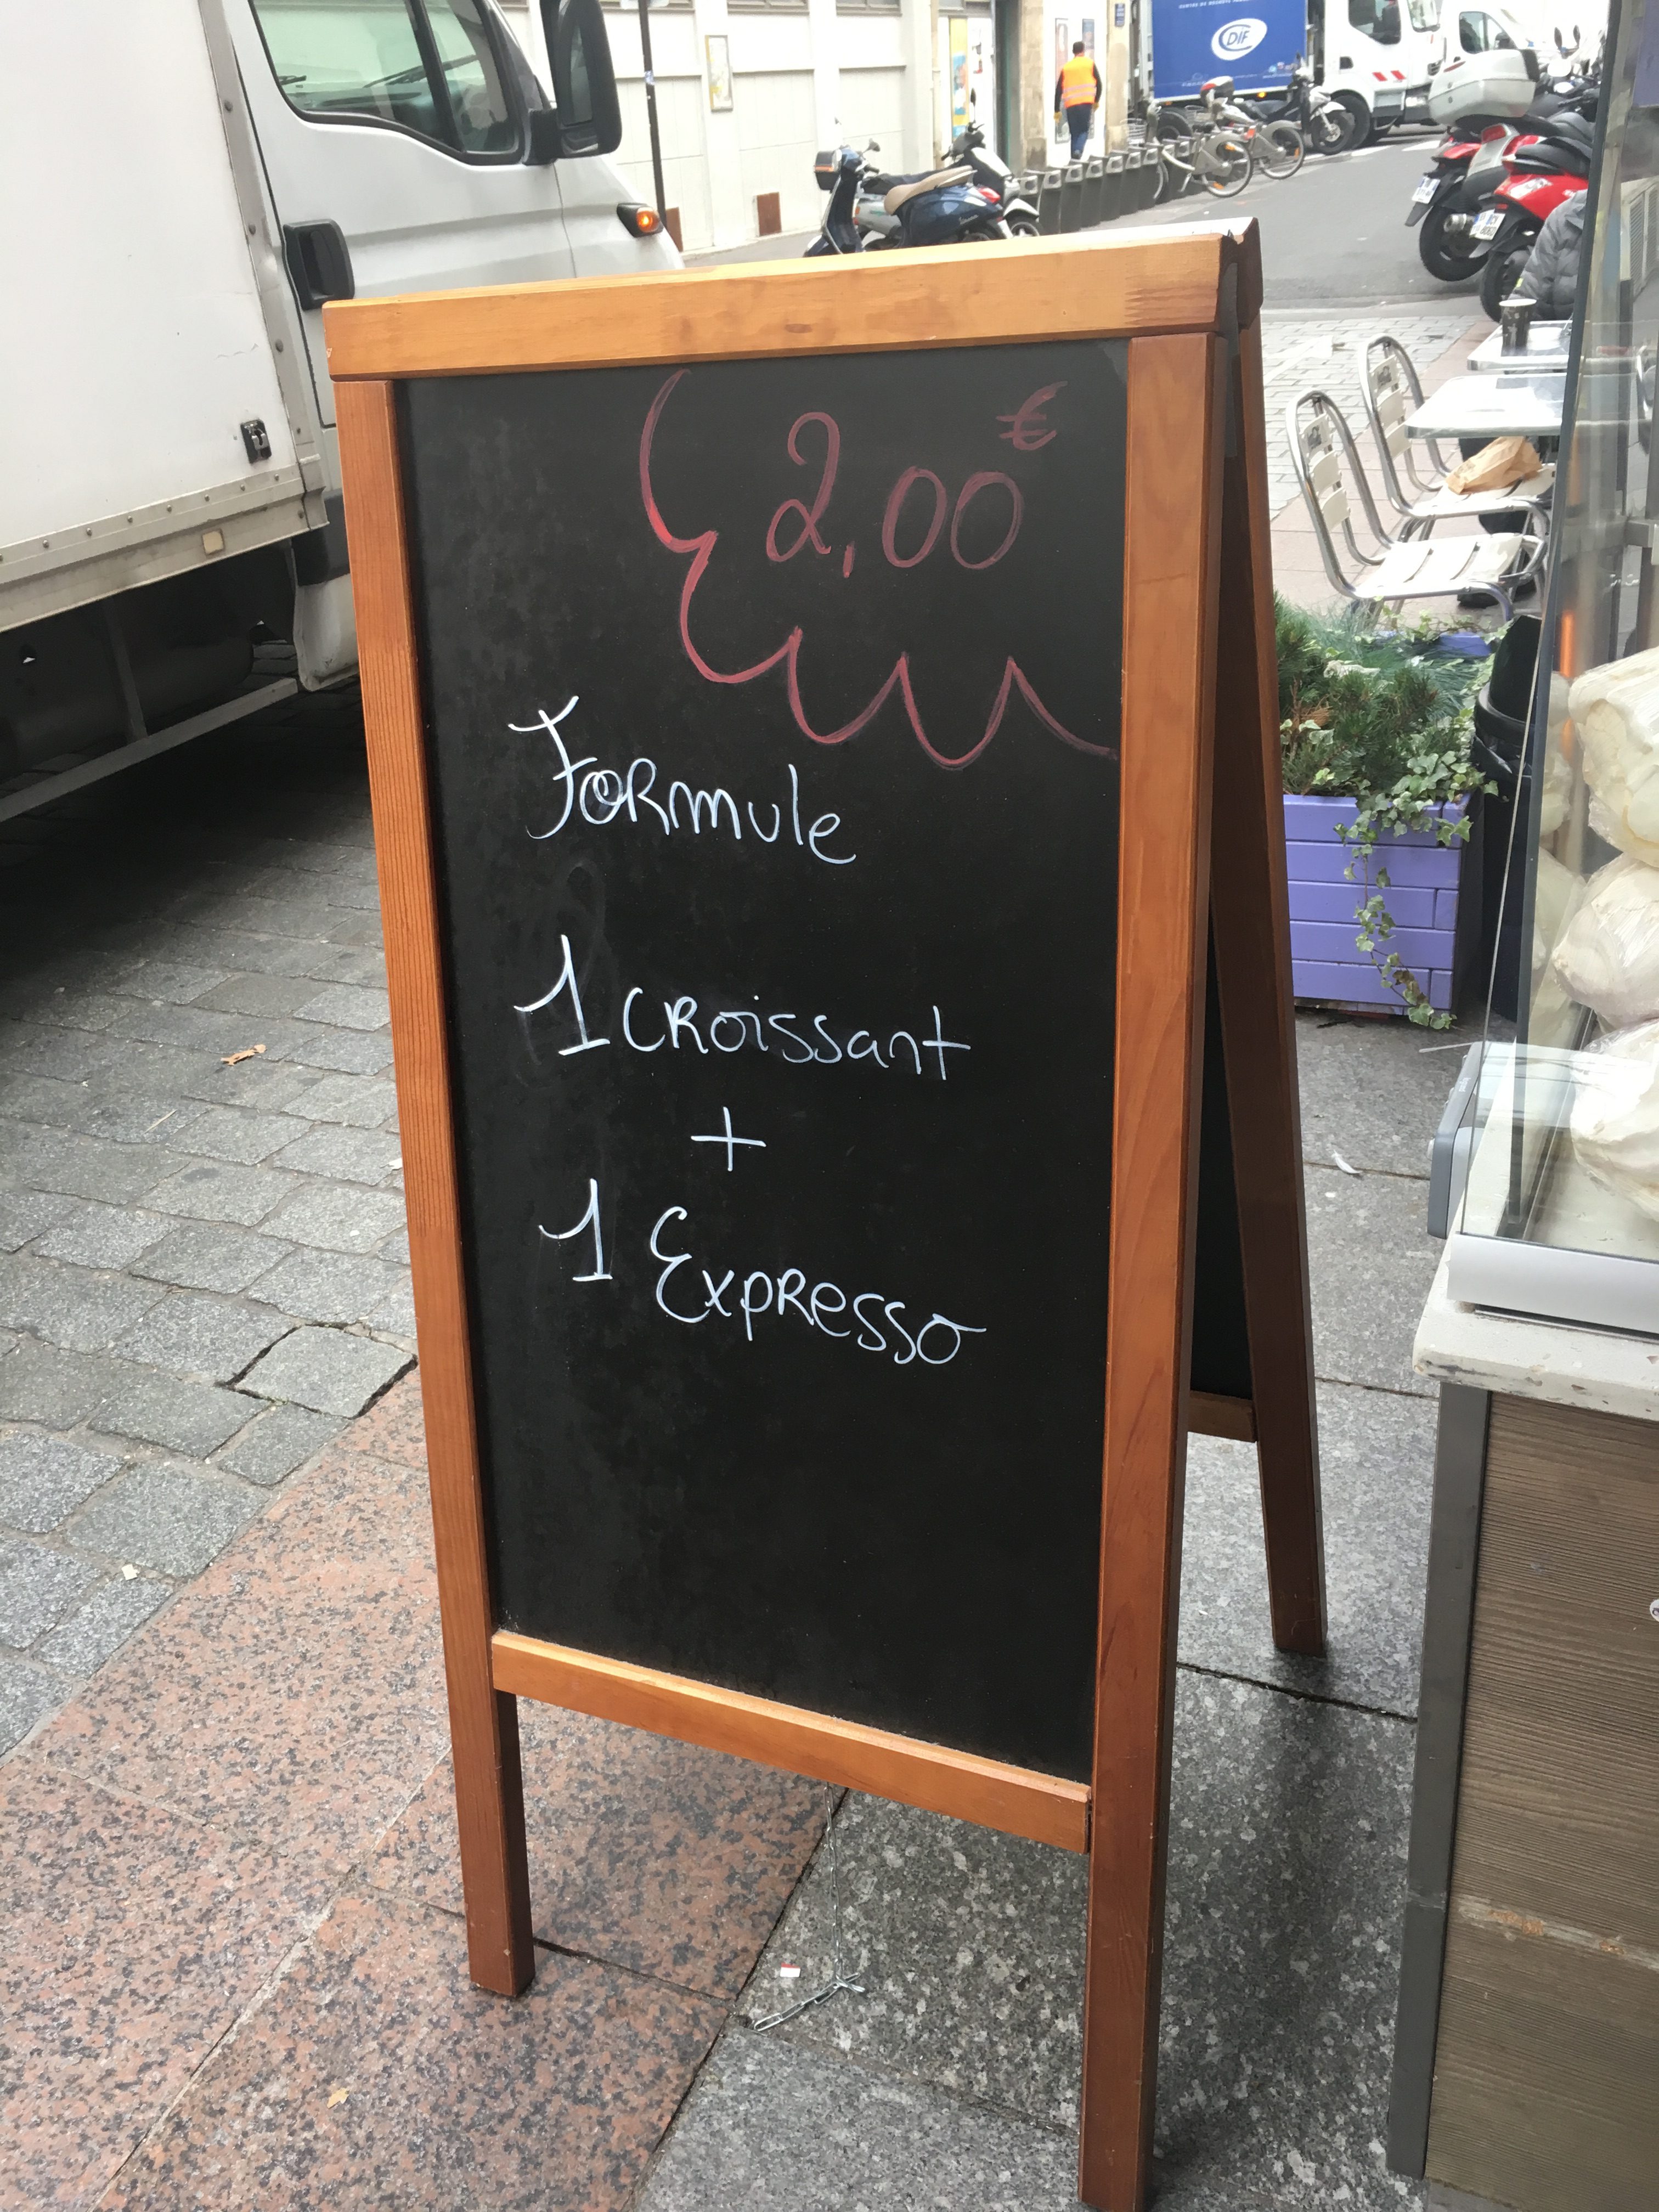 DIF
2,00 €
Formule
1 croissant
+
1 Expresso